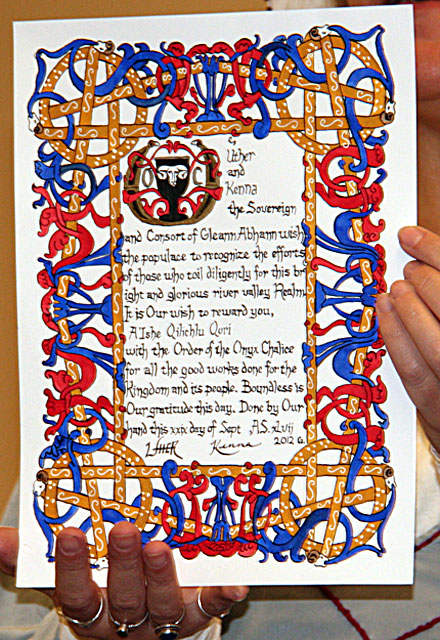 O C
&,
Uther
and
Kenna
the Sovereign
and Consort of Gleann Abhann wish
the populace to recognize the efforts
of those who toil diligently for this br
ight and glorious river valley Realm.
It is Our wish to reward you,
AIshe Qilichlu Qori
with the Order of the Onyx Chalice
for all the good works done for the
Kingdom and its people. Boundless is
Our gratitude this day. Done by Our
hand this xxix day of Sept A.S. xLvii
Kenna 2012